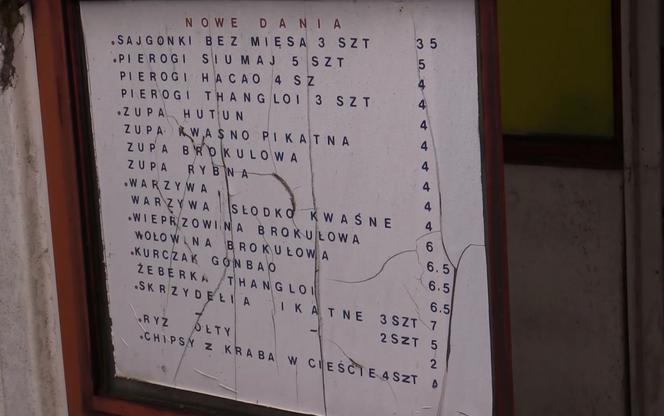 NOWE DANIA
.SAJGONKI BEZ MIĘSA 3 SZT 3 5
.PIEROGI SIUMAJ 5 SZT 5
PIEROGI HACAO 4 SZ 4
PIEROGI THANGLOI 3 SZT 4
.ZUPA HUTUN 4
ZUPA KWAŚNO PIKATNA 4
ZUPA BROKUŁOWA 4
ZUPA RYBNA 4
.WARZYWA 4
WARZYWA SŁODKO KWAŚNE 4
.WIEPRZOWINA BROKUŁOWA 6
WOŁOWINA BROKUŁOWA 6.5
.KURCZAK GONBAO 6.5
ŻEBERKA THANGLOI 6.5
.SKRZYDEŁ A IKATNE 3SZT 7
– 2SZT 5
.RYŻ ÓŁTY 2
.CHIPSY Z KRABA W CIEŚCIE 4SZT